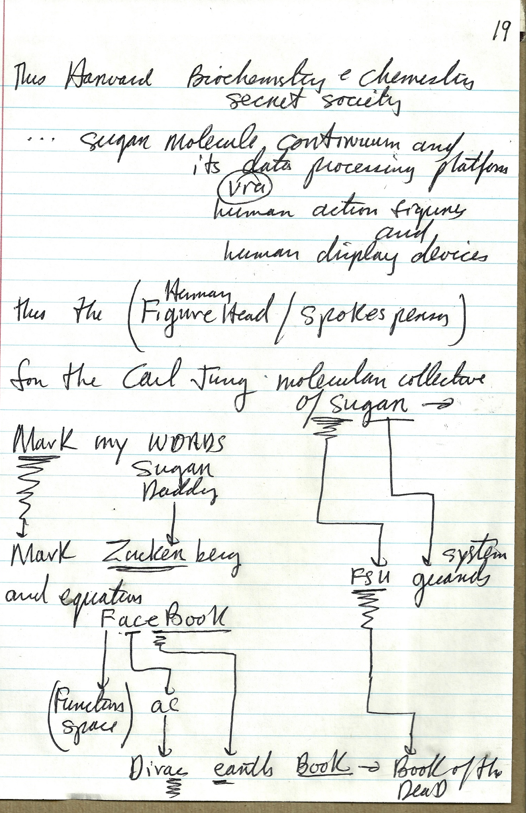 19
Thus Harvard Biochemistry & chemistry
secret society
... sugar molecule continuum and
its data processing platform
via
human action figures
and
human display devices
thus the (Human Figure Head / spokesperson)
for the Carl Jung molecular collective
of sugar →
Mark my WORDS
Sugar
Daddy
Mark Zucken berg
system
FSU guards
and equation
FaceBook
(Function space)
ac
Dirac earth Book → Book of the
DeaD